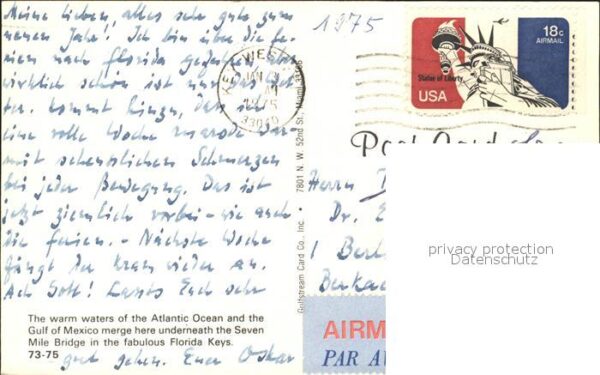 Meine Lieben, alles sehr gute zum
neuen Jahr! Ich bin über die Fe-
rien nach Florida gefahren, aber
wirklich schön ist nur das Wet-
ter. Kommt hinzu, dass ich
eine volle Woche
mit scheusslichen Schmerzen
bei jeder Bewegung. Das ist
jetzt ziemlich vorbei - wie auch
die Ferien. - Nächste Woche
fängt der Kram wieder an.
Ach Gott! Lasst's Euch sehr
gut gehen. Euer Oskar
The warm waters of the Atlantic Ocean and the
Gulf of Mexico merge here underneath the Seven
Mile Bridge in the fabulous Florida Keys.
73-75
1975
KEY WEST
JAN
AM
1975
33040
18c
AIRMAIL
Statue of Liberty
USA
Gulfstream Card Co., Inc. • 7801 N. W. 52nd St., Miami
Post Card
Herrn
Dr.
1 Berl
AIRM
PAR A
privacy protection
Datenschutz